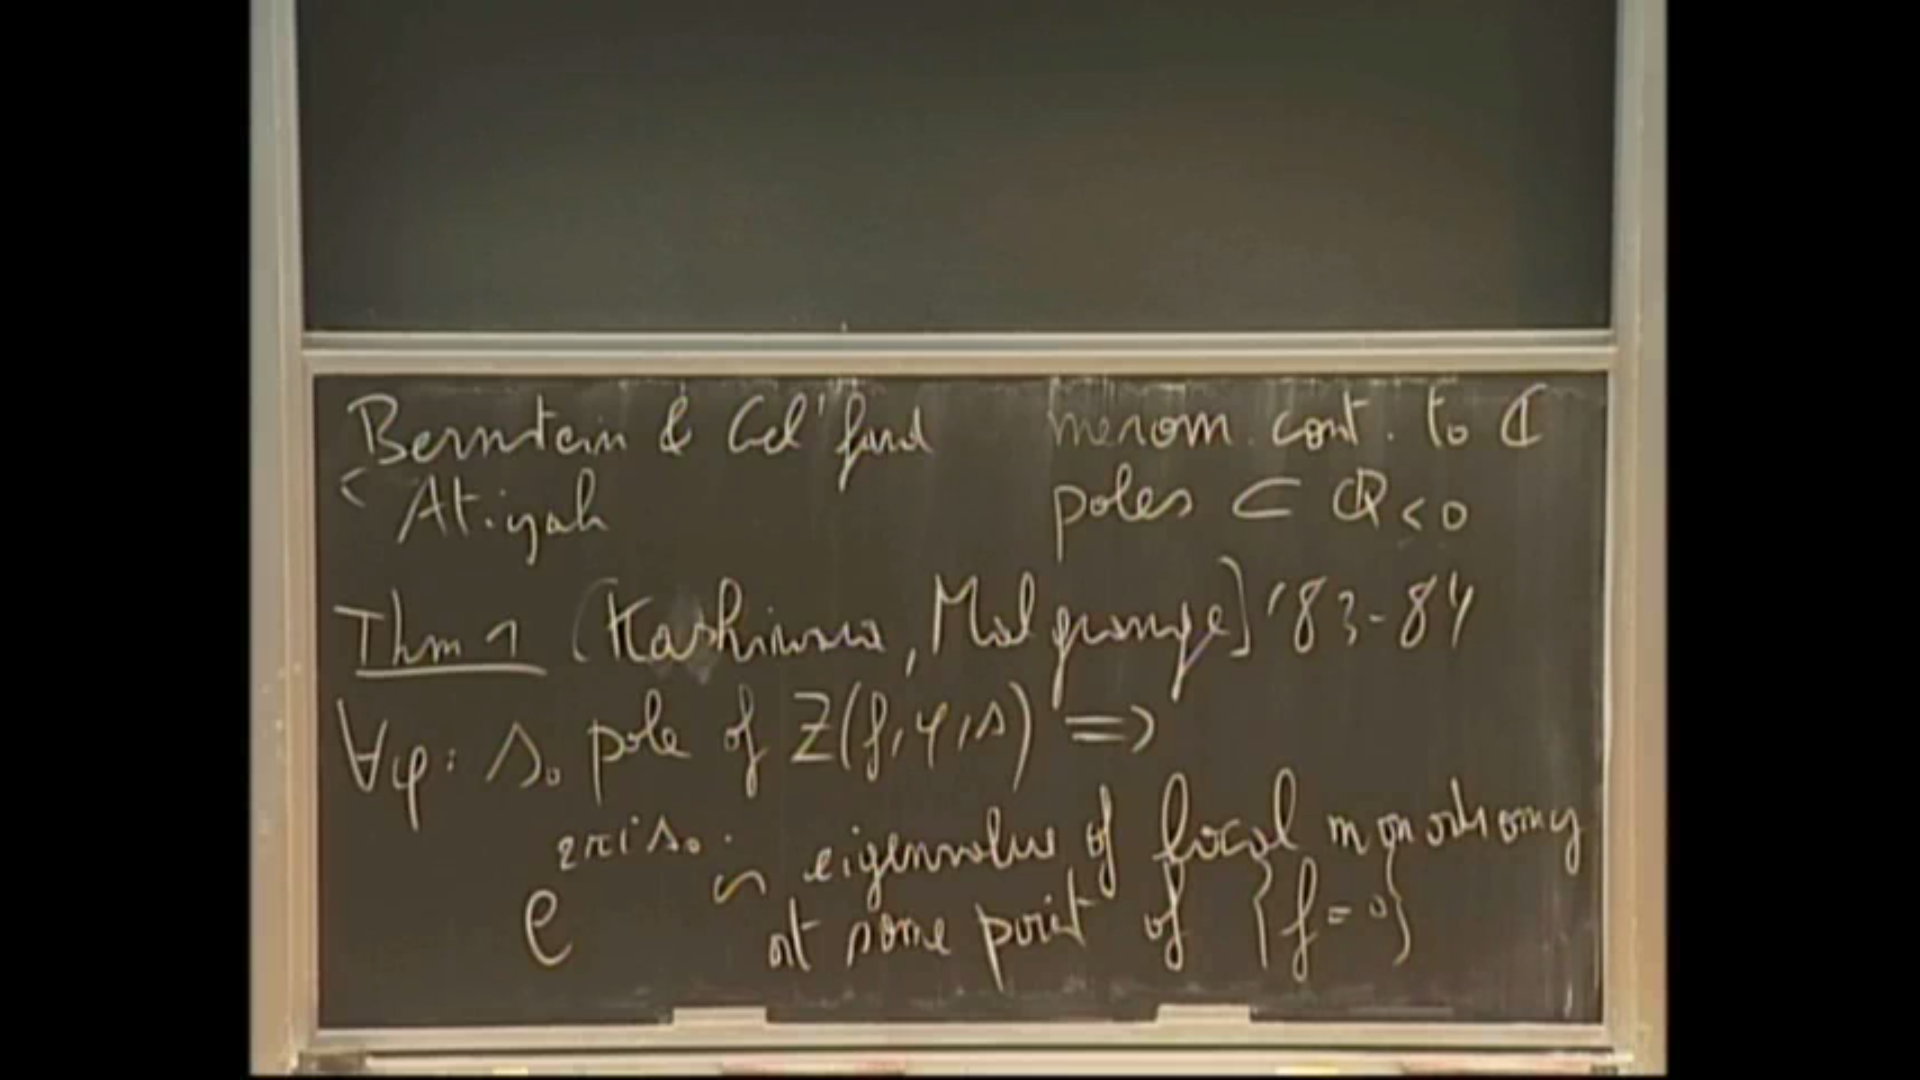 Bernstein & Gel'fand merom. cont. to ℂ
Atiyah poles ⊂ ℚ<0
Thm 1 (Kashiwara, Malgrange) '83-84
∀φ: s₀ pole of Z(f,φ,s) ⇒
e^{2πi s₀} is eigenvalue of local monodromy
at some point of {f=0}